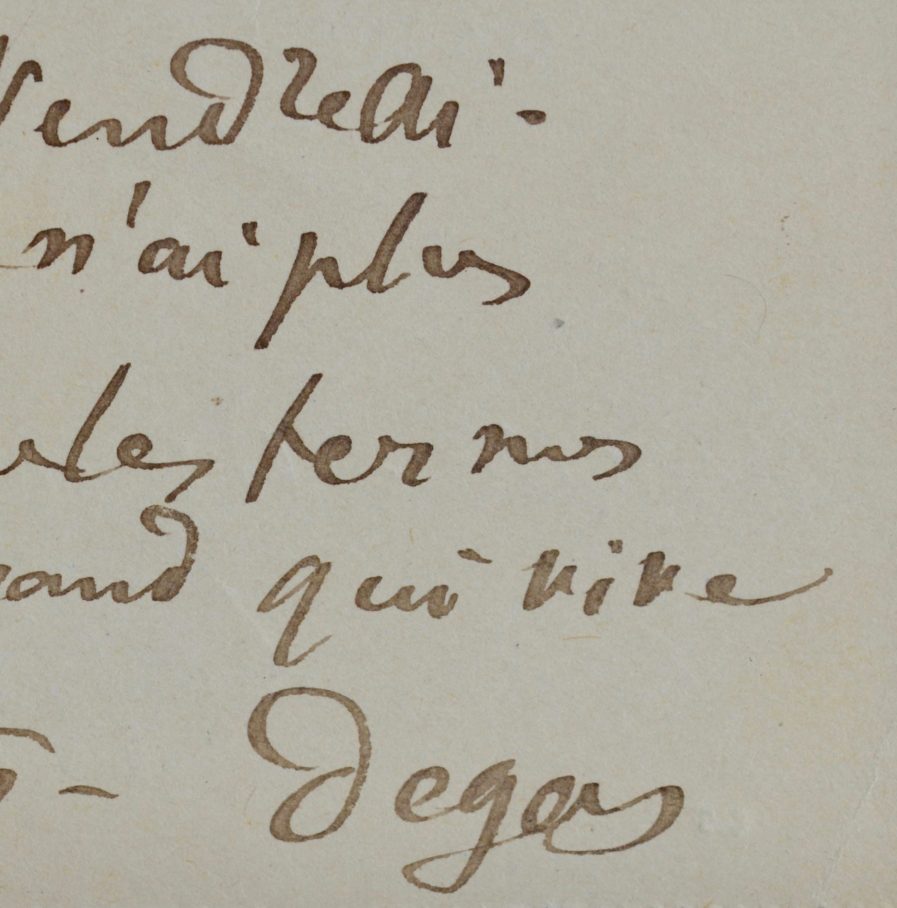 Vendredi -
n'ai plus
les termes
qui vive
- Degas